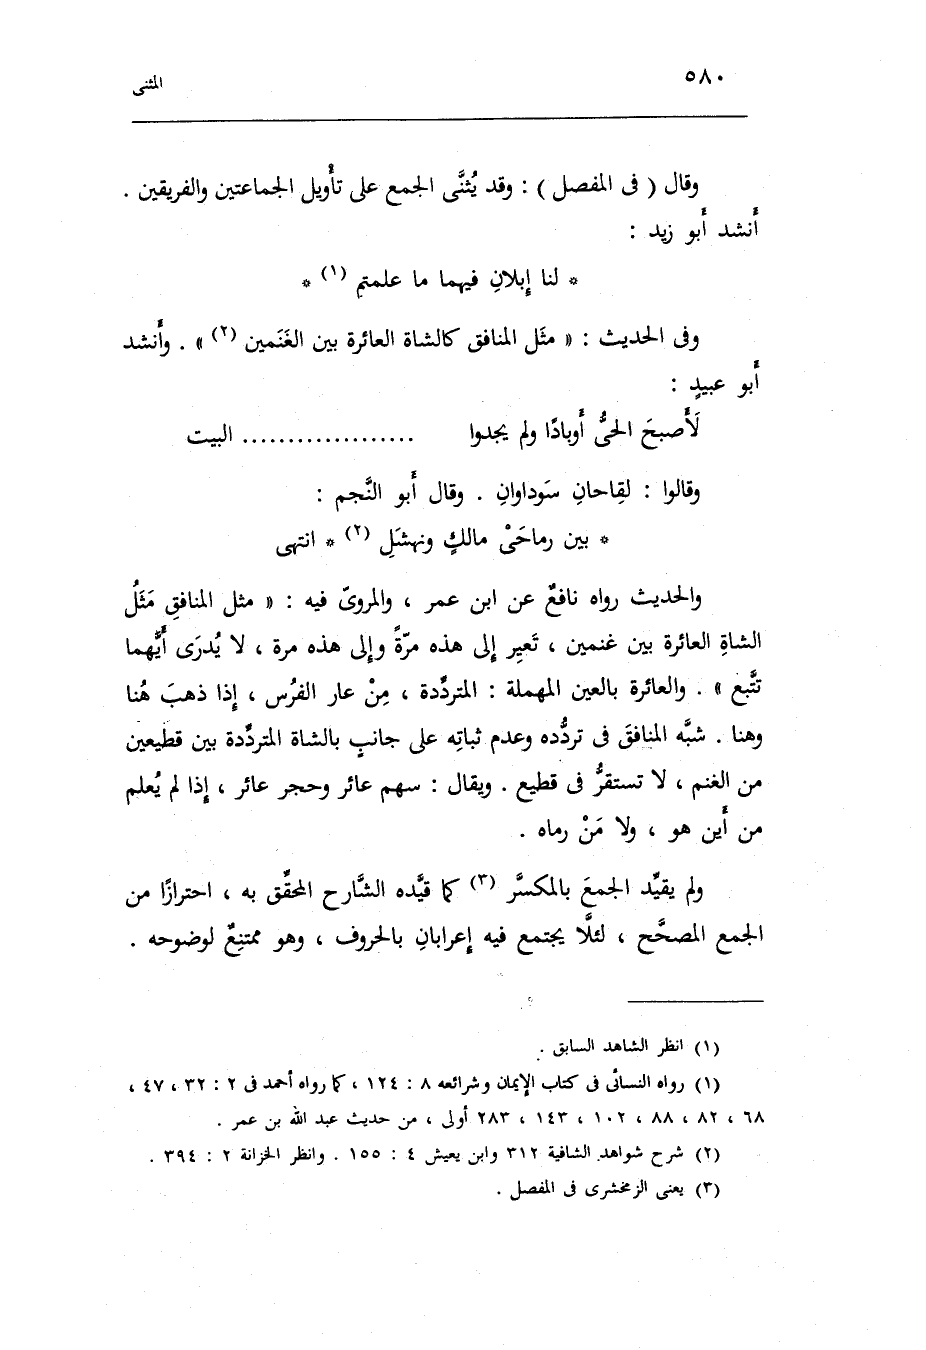 ٥٨٠ المثنى
وقال ( فى المفصل ) : وقد يُثنَّى الجمع على تأْويل الجماعتين والفريقين .
أَنشد أَبو زيد :
* لنا إِبلانِ فيهما ما علمتمِ (١) *
وفى الحديث : « مثَل المنافق كالشاة العائرة بين الغَنَمين (٢) » . وأَنشد
أَبو عبيدٍ :
لَأَصبحَ الحىُّ أَوبادًا ولم يجدوا .................. البيت
وقالوا : لقِاحانِ سَوداوانِ . وقال أَبو النَّجم :
* بين رماحَىْ مالكٍ ونهشَلِ (٢) * انتهى
والحديث رواه نافعٌ عن ابن عمر ، والمروىّ فيه : « مثل المنافقِ مَثَلُ
الشاةِ العائرة بين غنمين ، تَعيِر إِلى هذه مرّةً وإِلى هذه مرة ، لا يُدرَى أَيُّهما
تتَّبع » . والعائرة بالعين المهملة : المتردِّدة ، مِنْ عار الفرُس ، إِذا ذهبَ هُنا
وهنا . شبَّه المنافقَ فى تردُّده وعدم ثباتِه على جانبٍ بالشاة المتردِّدة بين قطيعين
من الغنم ، لا تستقرُّ فى قطيع . ويقال : سهم عائر وحجر عائر ، إِذا لم يُعلم
من أَين هو ، ولا مَنْ رماه .
ولم يقيِّد الجمعَ بالمكسَّر (٣) كما قيَّده الشَّارح المحقِّق به ، احترازًا من
الجمع المصحَّح ، لئلَّا يجتمع فيه إِعرابانِ بالحروف ، وهو ممتنِعٌ لوضوحه .
(١) انظر الشاهد السابق .
(١) رواه النسائى فى كتاب الإيمان وشرائعه ٨ : ١٢٤ ، كما رواه أحمد فى ٢ : ٣٢ ، ٤٧ ،
٦٨ ، ٨٢ ، ٨٨ ، ١٠٢ ، ١٤٣ ، ٢٨٣ أولى ، من حديث عبد الله بن عمر .
(٢) شرح شواهد الشافية ٣١٢ وابن يعيش ٤ : ١٥٥ . وانظر الخزانة ٢ : ٣٩٤ .
(٣) يعنى الزمخشرى فى المفصل .